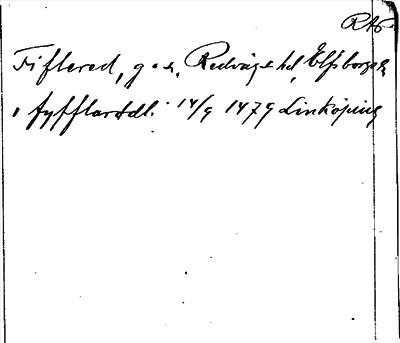 RAp
Fiflered, g o s, Redvägs hd, Elfsborgs l.
, fyfflaredh. 14/9 1479 Linköping